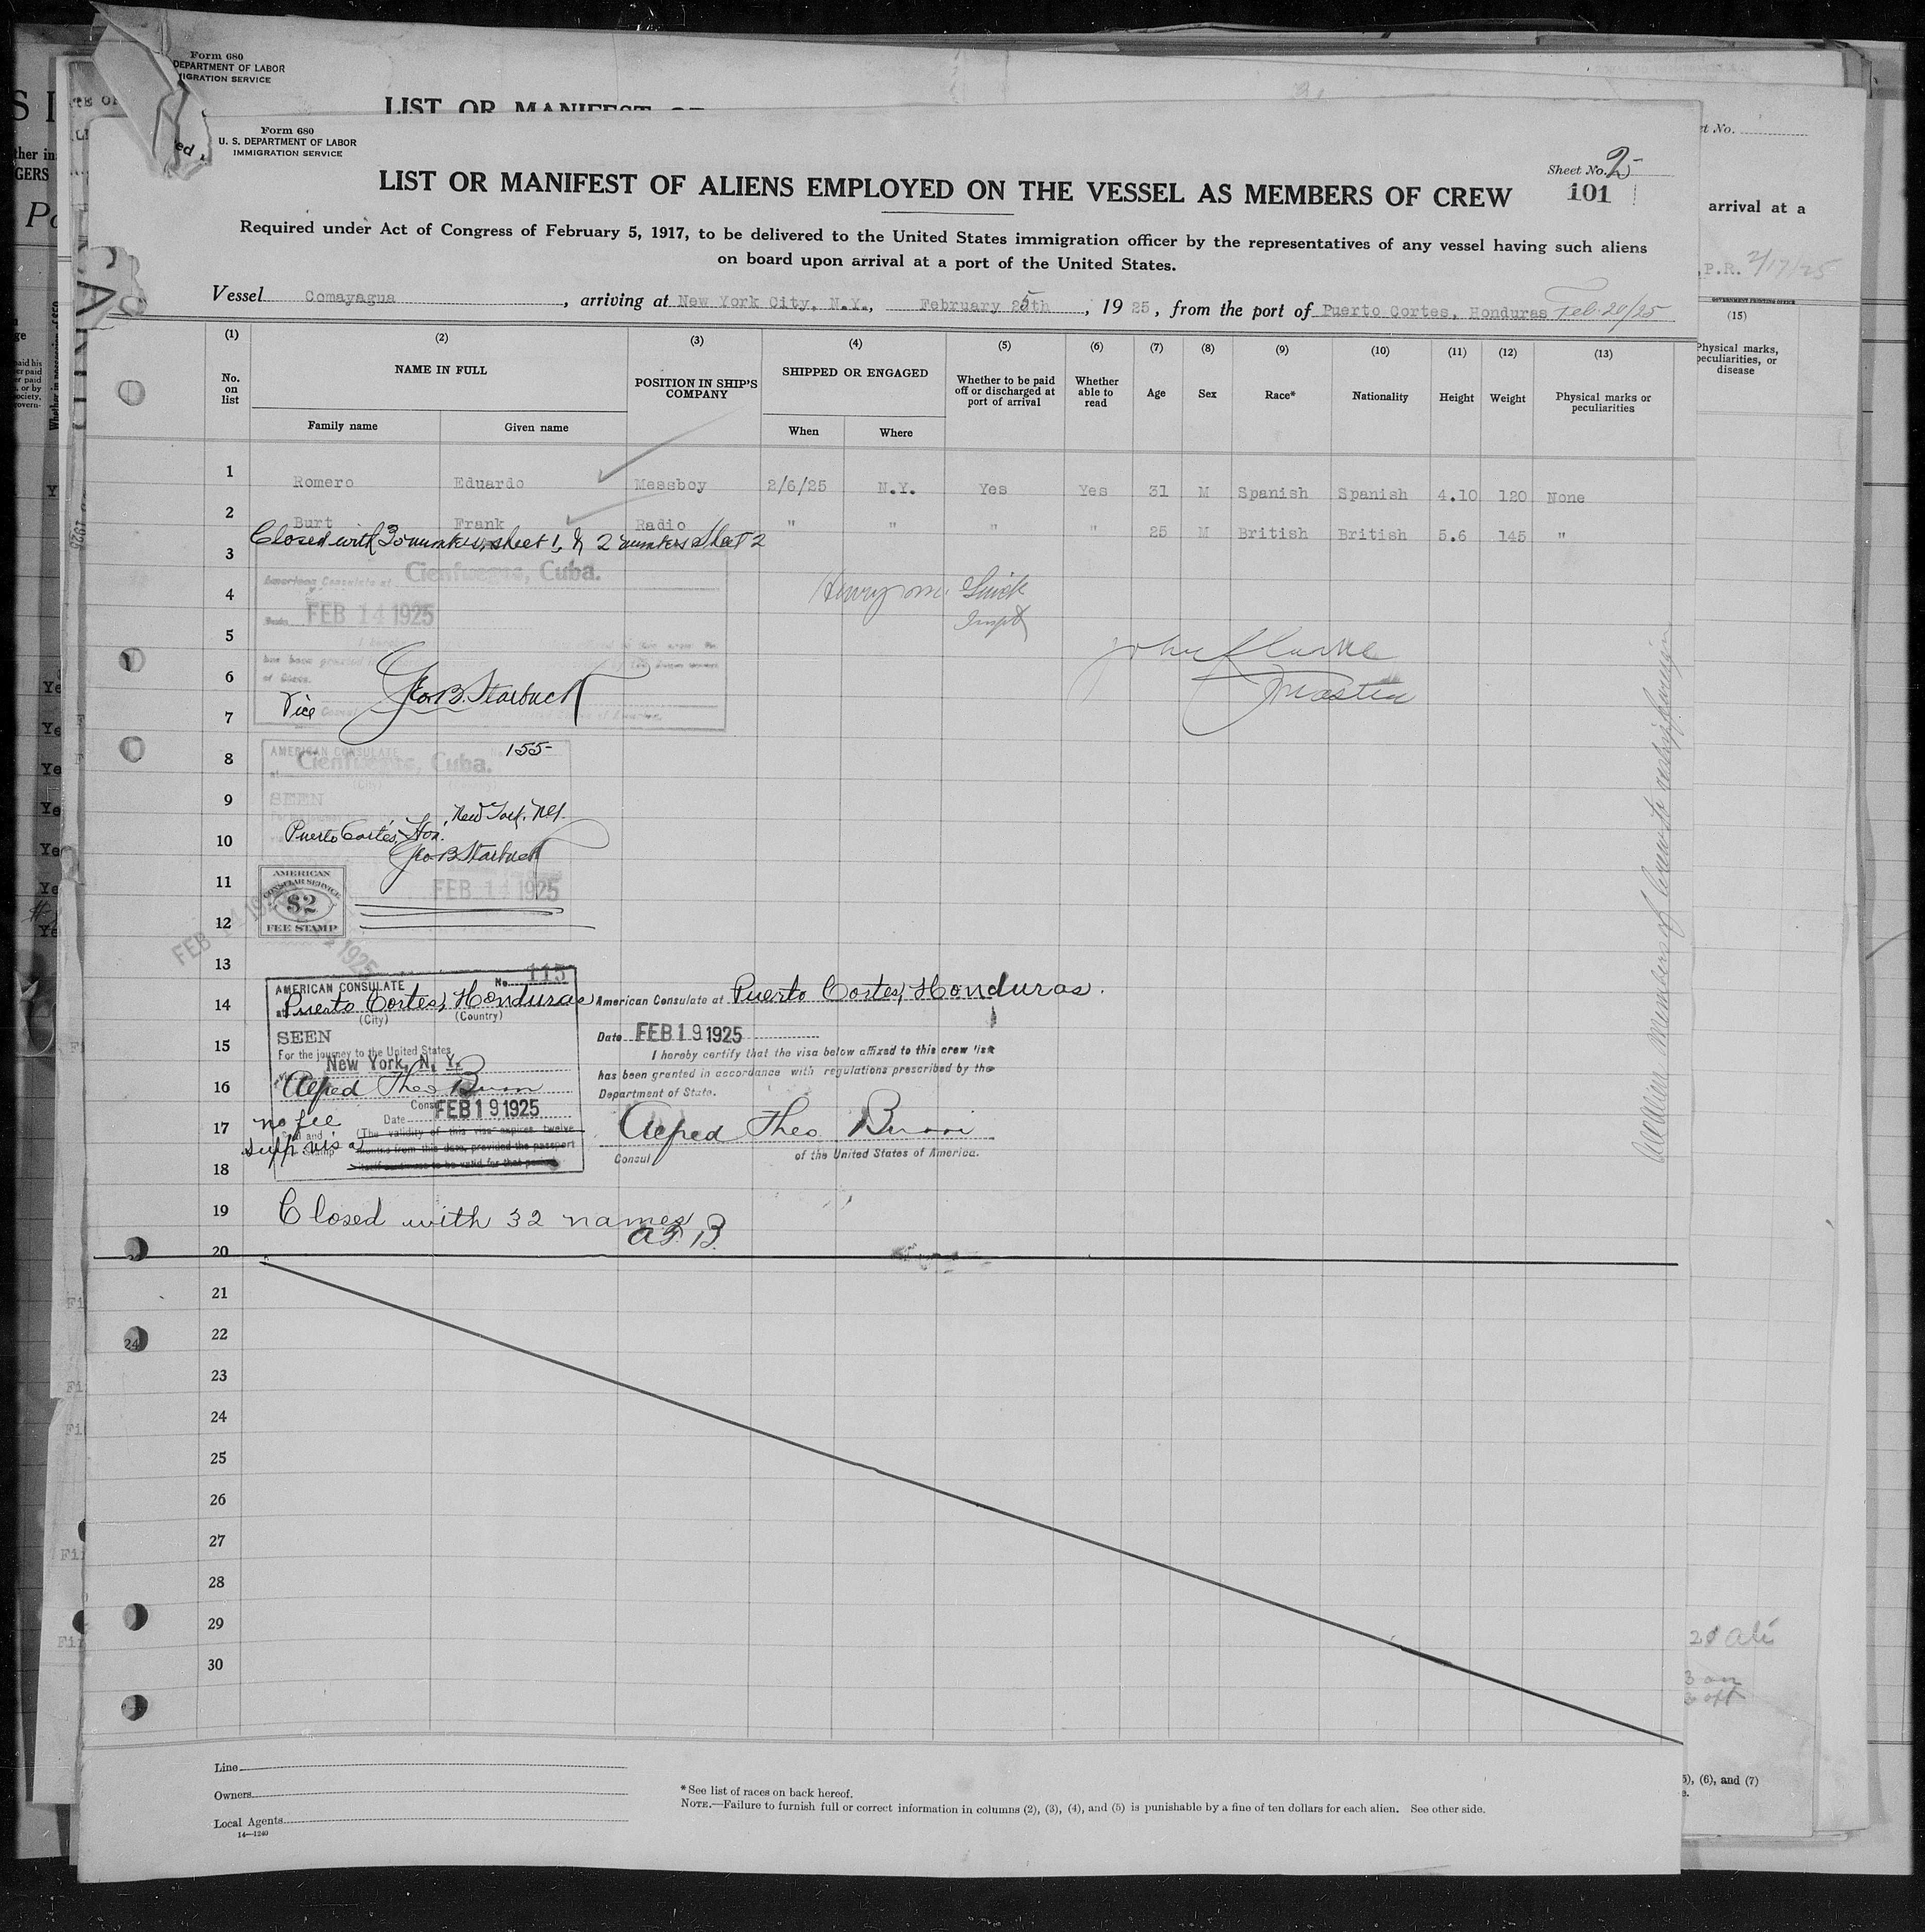 Form 680
DEPARTMENT OF LABOR
IGRATION SERVICE
LIST OR MANIFEST
Form 680
U. S. DEPARTMENT OF LABOR
IMMIGRATION SERVICE
Sheet No. 2
101
LIST OR MANIFEST OF ALIENS EMPLOYED ON THE VESSEL AS MEMBERS OF CREW
Required under Act of Congress of February 5, 1917, to be delivered to the United States immigration officer by the representatives of any vessel having such aliens
on board upon arrival at a port of the United States.
Vessel Comayagua, arriving at New York City, N.Y., February 25th, 1925, from the port of Puerto Cortes, Honduras Feb. 20/25
(1) (2) (3) (4) (5) (6) (7) (8) (9) (10) (11) (12) (13)
No. on list
NAME IN FULL
Family name
Given name
POSITION IN SHIP'S COMPANY
SHIPPED OR ENGAGED
When
Where
Whether to be paid off or discharged at port of arrival
Whether able to read
Age
Sex
Race*
Nationality
Height
Weight
Physical marks or peculiarities
1 Romero Eduardo Messboy 2/6/25 N.Y. Yes Yes 31 M Spanish Spanish 4.10 120 None
2 Burt Frank Radio " " " " 25 M British British 5.6 145 "
Closed with 30 numbers, sheet 1, & 2 numbers sheet 2
3
American Consulate at Cienfuegos, Cuba.
4
Henry M.
FEB 14 1925
Inspt
5
6
Geo B. Starbuck
Master
Vice
7
AMERICAN CONSULATE
155
8
Cienfuegos, Cuba.
(City)
9
SEEN
New York, N.Y.
10
Puerto Cortés, Hon.
Geo B. Starbuck
11
FEB 14 1925
AMERICAN
CONSULAR SERVICE
$2
FEE STAMP
12
13
No. 115
AMERICAN CONSULATE
14
at Puerto Cortes, Honduras
(City) (Country)
American Consulate at Puerto Cortes, Honduras.
15
SEEN
Date FEB 19 1925
For the journey to the United States
New York, N. Y.
I hereby certify that the visa below affixed to this crew list
has been granted in accordance with regulations prescribed by the
Department of State.
16
Alfred Theo Burri
Consul
Date FEB 19 1925
17
no fee
(The validity of this visa expires twelve
months from this date, provided the passport
itself continues to be valid for that period)
Supp vis a
Alfred Theo. Burri
Consul of the United States of America.
18
19
Closed with 32 names
A.T.B.
20
21
22
23
24
25
26
27
28
29
30
Line
Owners
Local Agents
14—1240
*See list of races on back hereof.
NOTE.—Failure to furnish full or correct information in columns (2), (3), (4), and (5) is punishable by a fine of ten dollars for each alien. See other side.
arrival at a
P.R. 2/17/25
GOVERNMENT PRINTING OFFICE
(15)
Physical marks,
peculiarities, or
disease
(6), and (7)